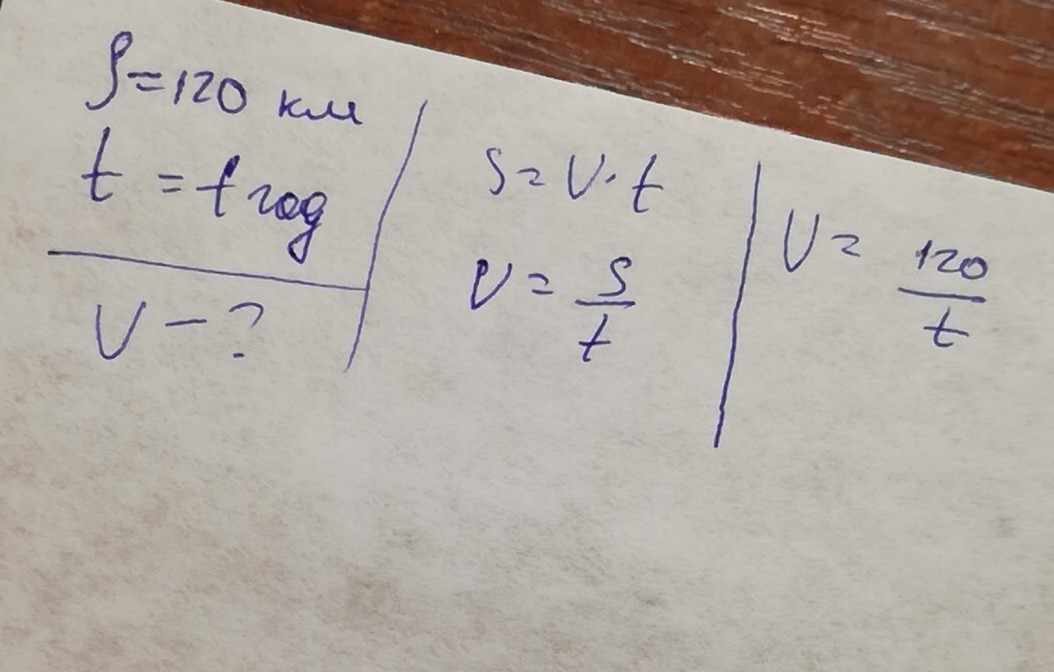 S=120 км
t = t год
V - ?
S = V · t
V = S/t
V = 120/t